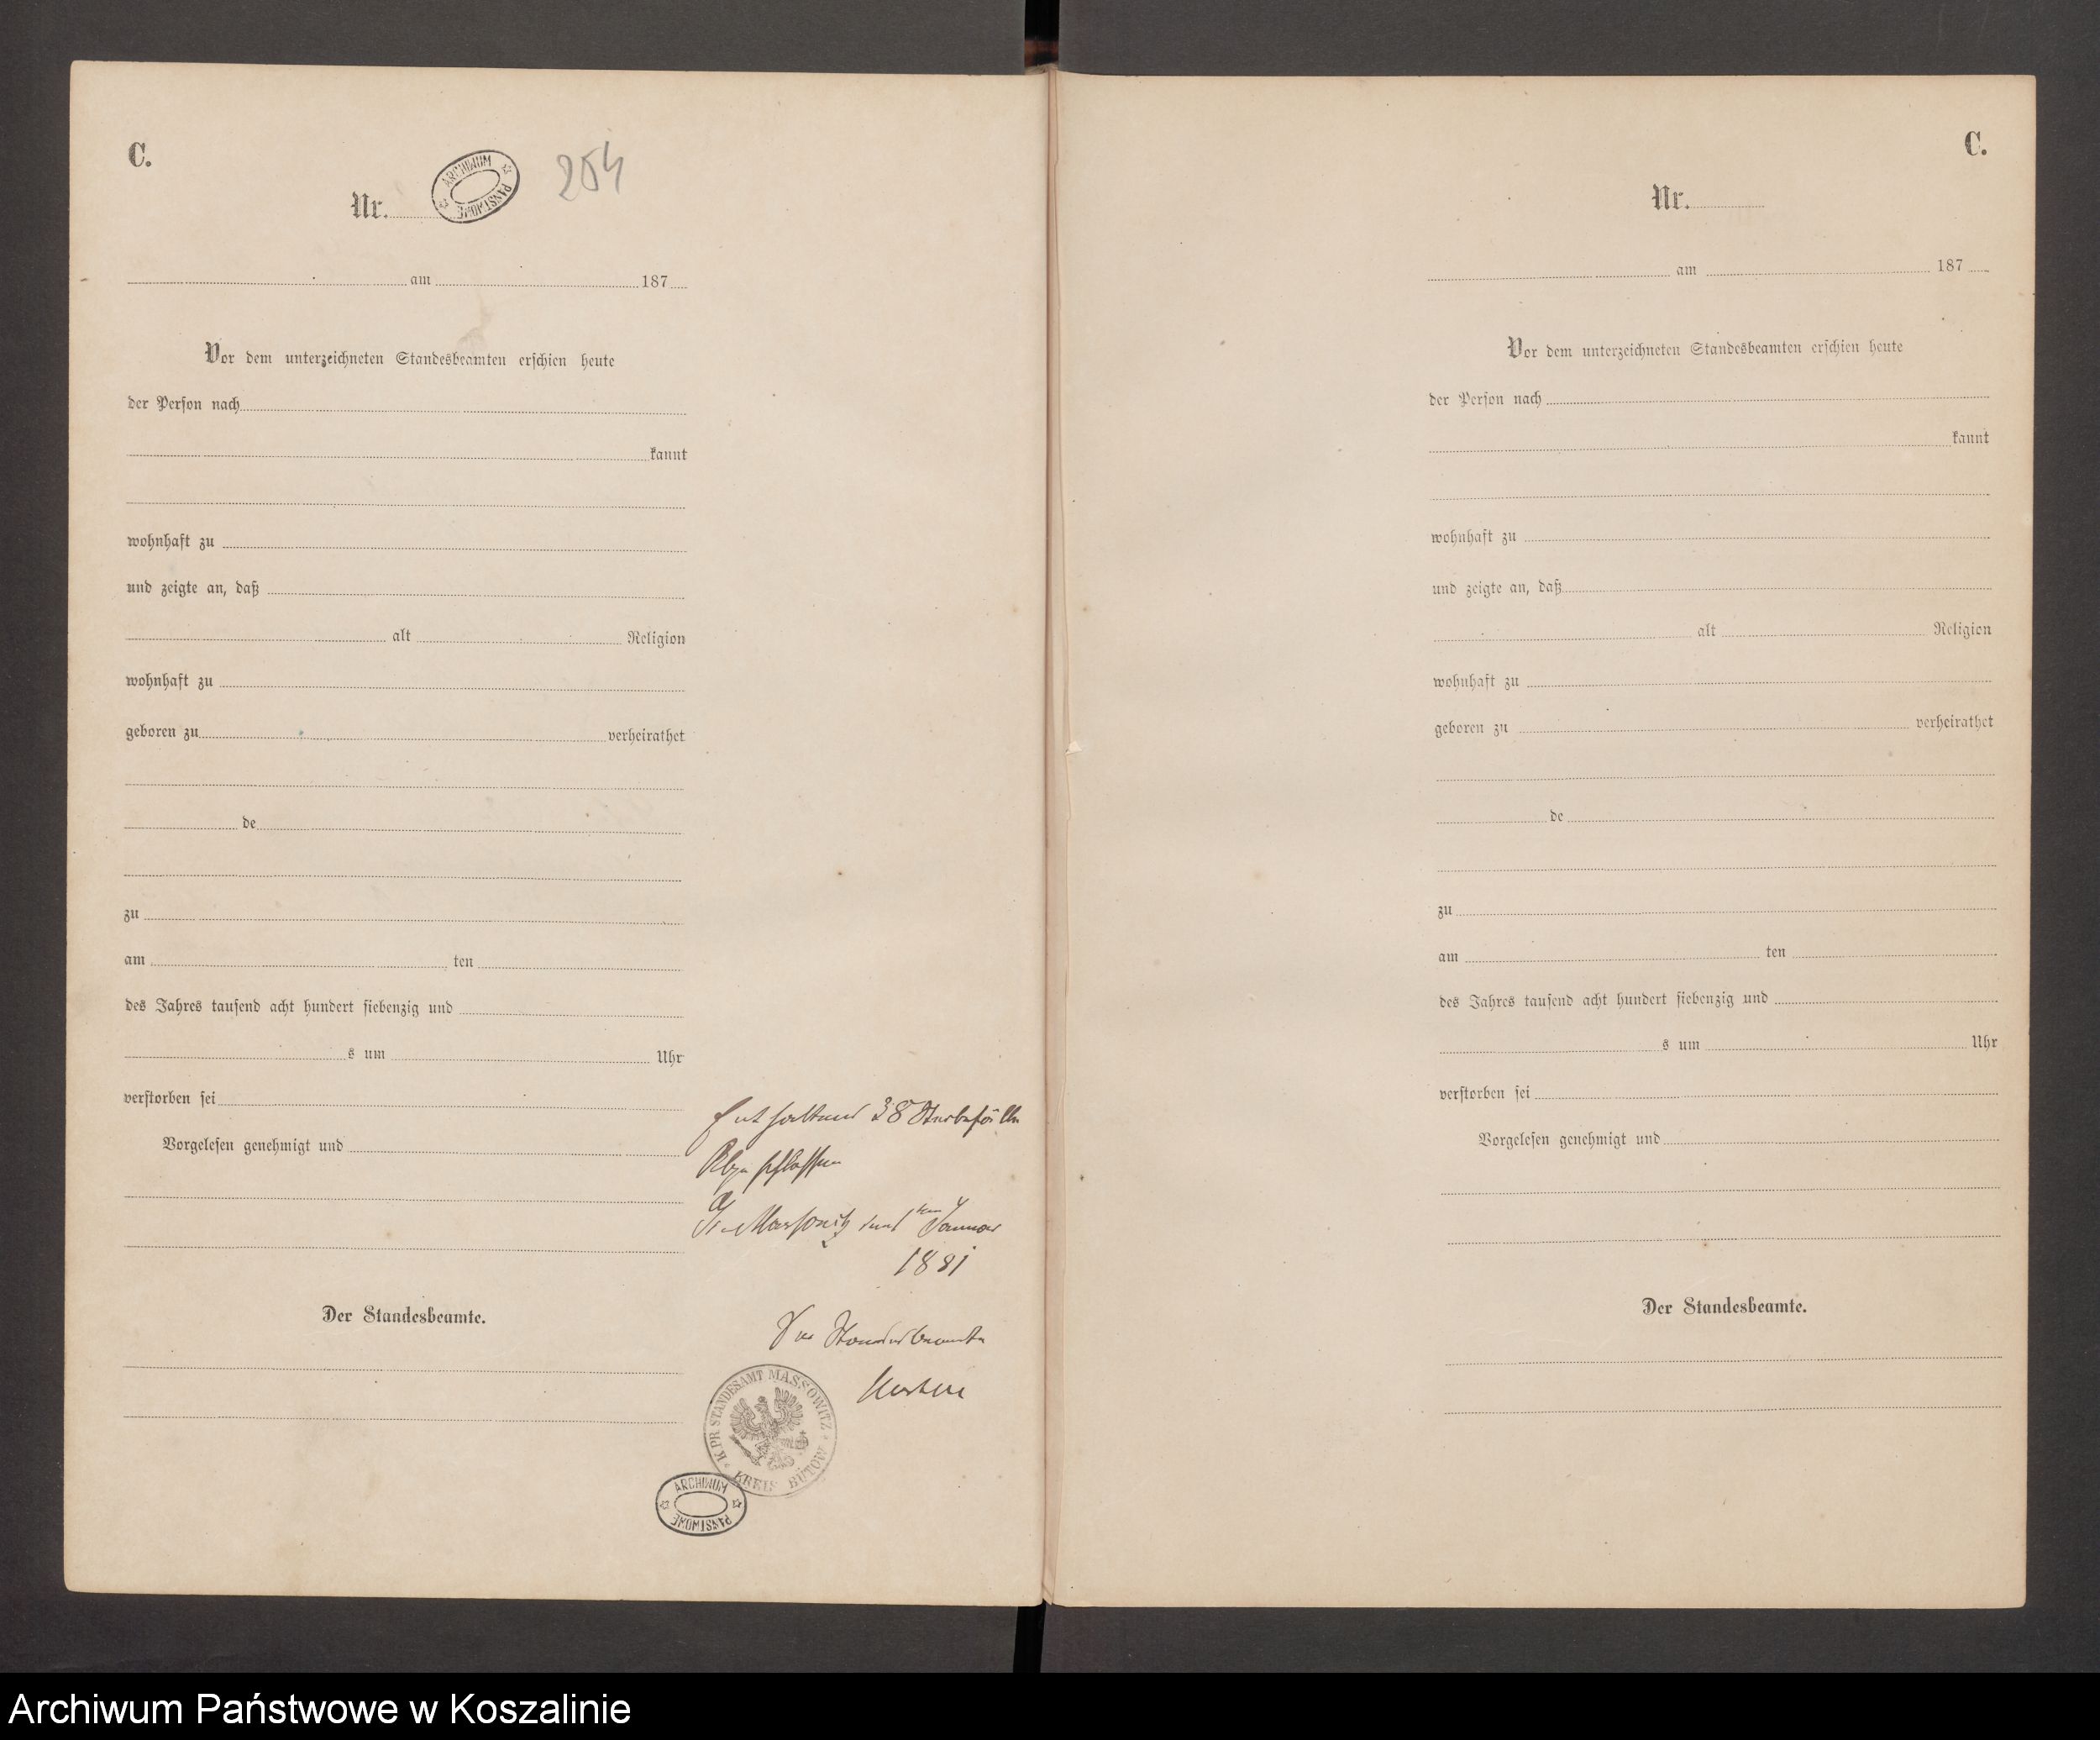 C.
Nr.
ARCHIWUM PAŃSTWOWE
254
am 187
Vor dem unterzeichneten Standesbeamten erschien heute
der Person nach
kannt
wohnhaft zu
und zeigte an, daß
alt Religion
wohnhaft zu
geboren zu verheirathet
de
zu
am ten
des Jahres tausend acht hundert siebenzig und
s um Uhr
verstorben sei
Vorgelesen genehmigt und
Der Standesbeamte.
Enthaltend 38 Sterbefälle
Abgeschlossen
Massowitz den 1ten Januar
1881
Der Standesbeamte
K. PR. STANDESAMT MASSOWITZ
KREIS BÜTOW
ARCHIWUM PAŃSTWOWE
C.
Nr.
am 187
Vor dem unterzeichneten Standesbeamten erschien heute
der Person nach
kannt
wohnhaft zu
und zeigte an, daß
alt Religion
wohnhaft zu
geboren zu verheirathet
de
zu
am ten
des Jahres tausend acht hundert siebenzig und
s um Uhr
verstorben sei
Vorgelesen genehmigt und
Der Standesbeamte.
Archiwum Państwowe w Koszalinie